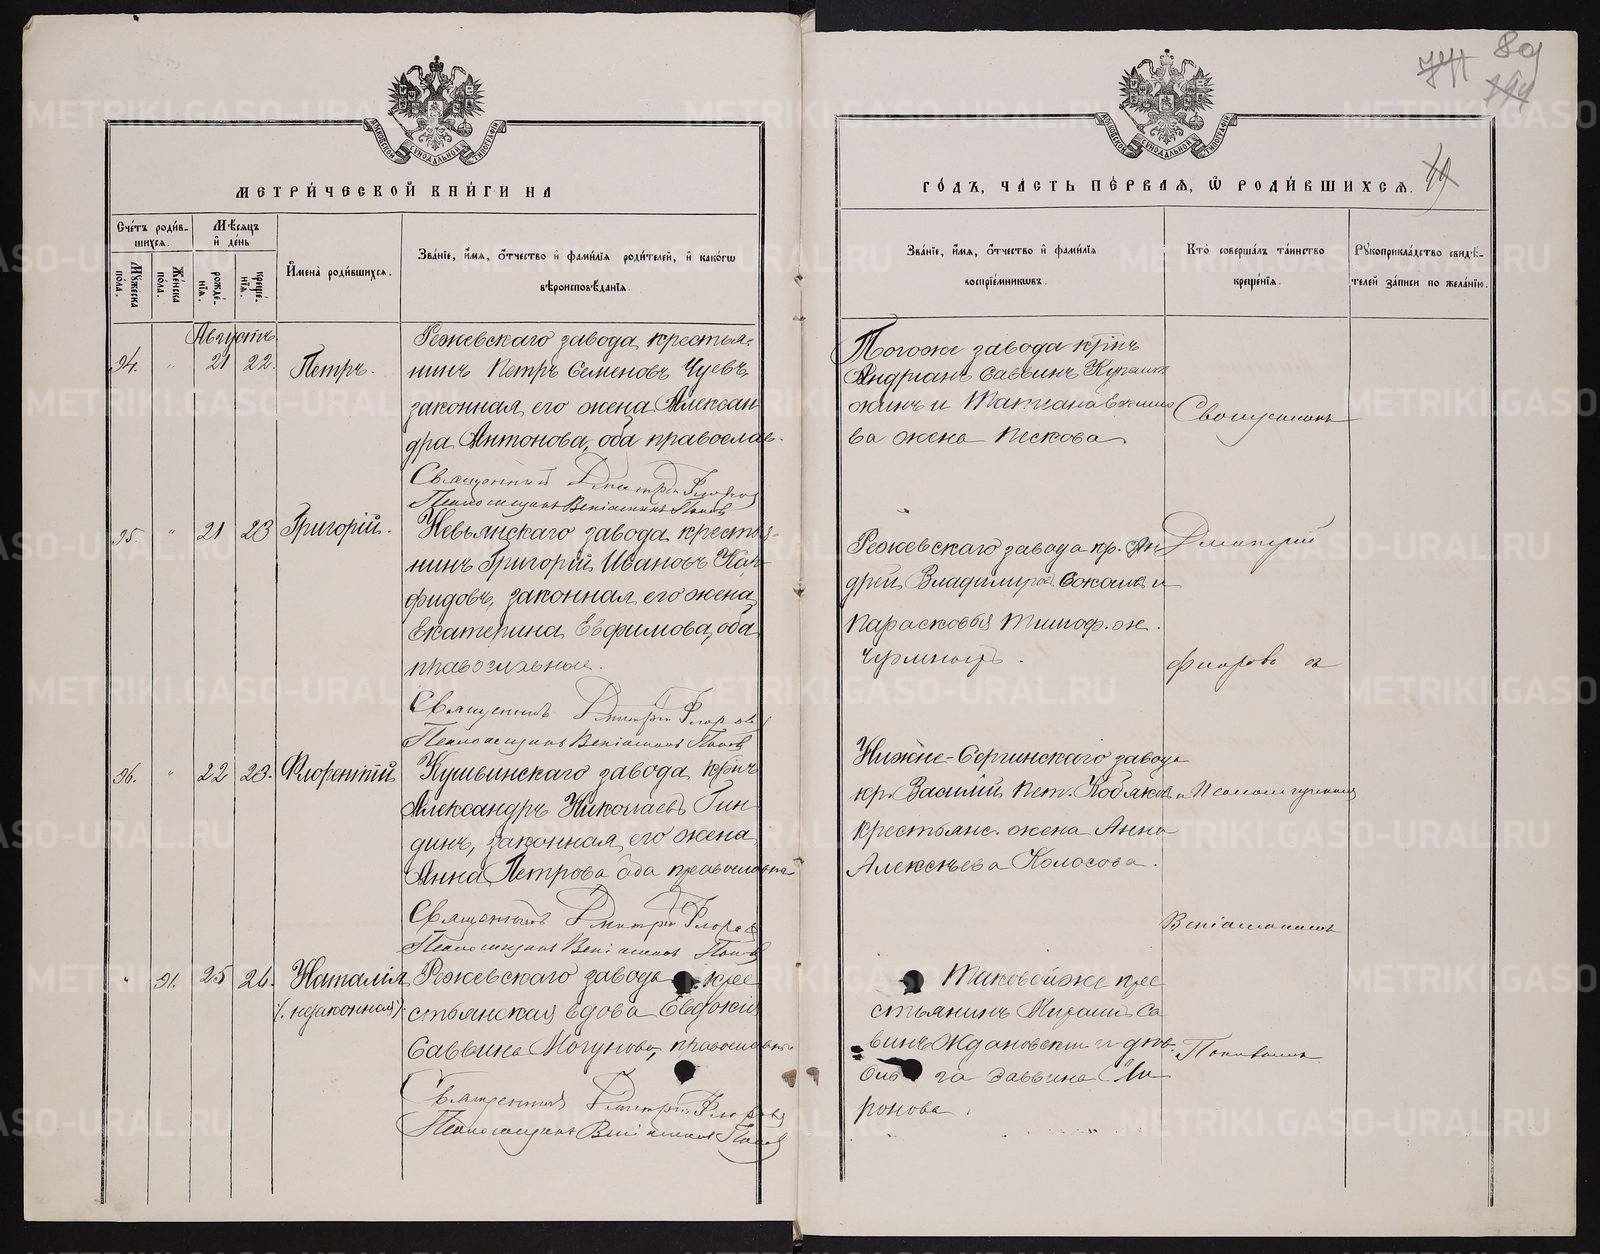 МЕТРИ́ЧЕСКОЙ КНИ́ГИ НА
Сче́тъ роди́в-
шихся.
Мѣсяцъ
и҆ де́нь
Мꙋжеска
пола.
Же́нска
пола.
рожде́-
нїѧ.
креще́-
нїѧ.
И҆мена̀ роди́вшихся.
Зва́нїе, и҆́мѧ, ѻ҆́тчество и҆ фами́лїѧ роди́телей, и҆ како́гѡ
вѣроисповѣ́данїѧ.
Августъ
94. " 21 22. Петръ.
Режевскаго завода крестья-
нинъ Петръ Семеновъ Чуевъ,
законная его жена Алексан
дра Антонова, оба православ.
Священникъ Дмитрій Флоровъ
Псаломщикъ Веніаминъ Поповъ
95. " 21 23 Григорій.
Невьянскаго завода крестья-
нинъ Григорій Ивановъ
фидовъ, законная его жена
Екатерина Евфимова, оба
православные.
Священникъ Дмитрій Флоровъ
Псаломщикъ Веніаминъ Поповъ
96. " 22 23. Флорентій
Кушвинскаго завода кр-нъ
Александръ Николаевъ Гин
динъ, законная его жена
Анна Петрова оба православные
Священникъ Дмитрій Флоровъ
Псаломщикъ Веніаминъ Поповъ
" 91. 25 26. Наталія
(незаконная)
Режевскаго завода кре
стьянская вдова Евдокія
Саввина Могунова, православной
Священникъ Дмитрій Флоровъ
Псаломщикъ Веніаминъ Поповъ
89
ГО́ДЪ, ЧА́СТЬ ПЕ́РВАЯ, Ѡ҆ РОДИ́ВШИХСЯ.
Зва́нїе, и҆́мѧ, ѻ҆́тчество и҆ фами́лїѧ
воспрїе́мникѡвъ.
Кто̀ соверша́лъ та́инство
креще́нїѧ.
Рꙋкоприкла́дство свидѣ́-
телей за́писи по жела́нїю.
Тогоже завода кр-нъ
Андріанъ Саввинъ
жинъ и Татіана
ва жена Пескова
Священникъ
Режевскаго завода кр. Ан
дрей Владиміровъ и
Парасковья Тимоф. ж.
Дмитрій
Флоровъ съ
Нижне-Сергинскаго завода
кр. Василій Пет. Кобяковъ и
крестьянс. жена Анна
Алексѣева Колосова.
Псаломщикомъ
Веніаминомъ
Таковойже кре
стьянинъ Са
винъ Ждановскій и дѣв.
Ольга Саввина Ми
ронова.
Поповымъ
METRIKI.GASO-URAL.RU